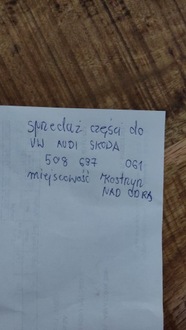 sprzedaż części do
VW AUDI SKODA
508 697 061
miejscowość Kostrzyn
NAD ODRĄ